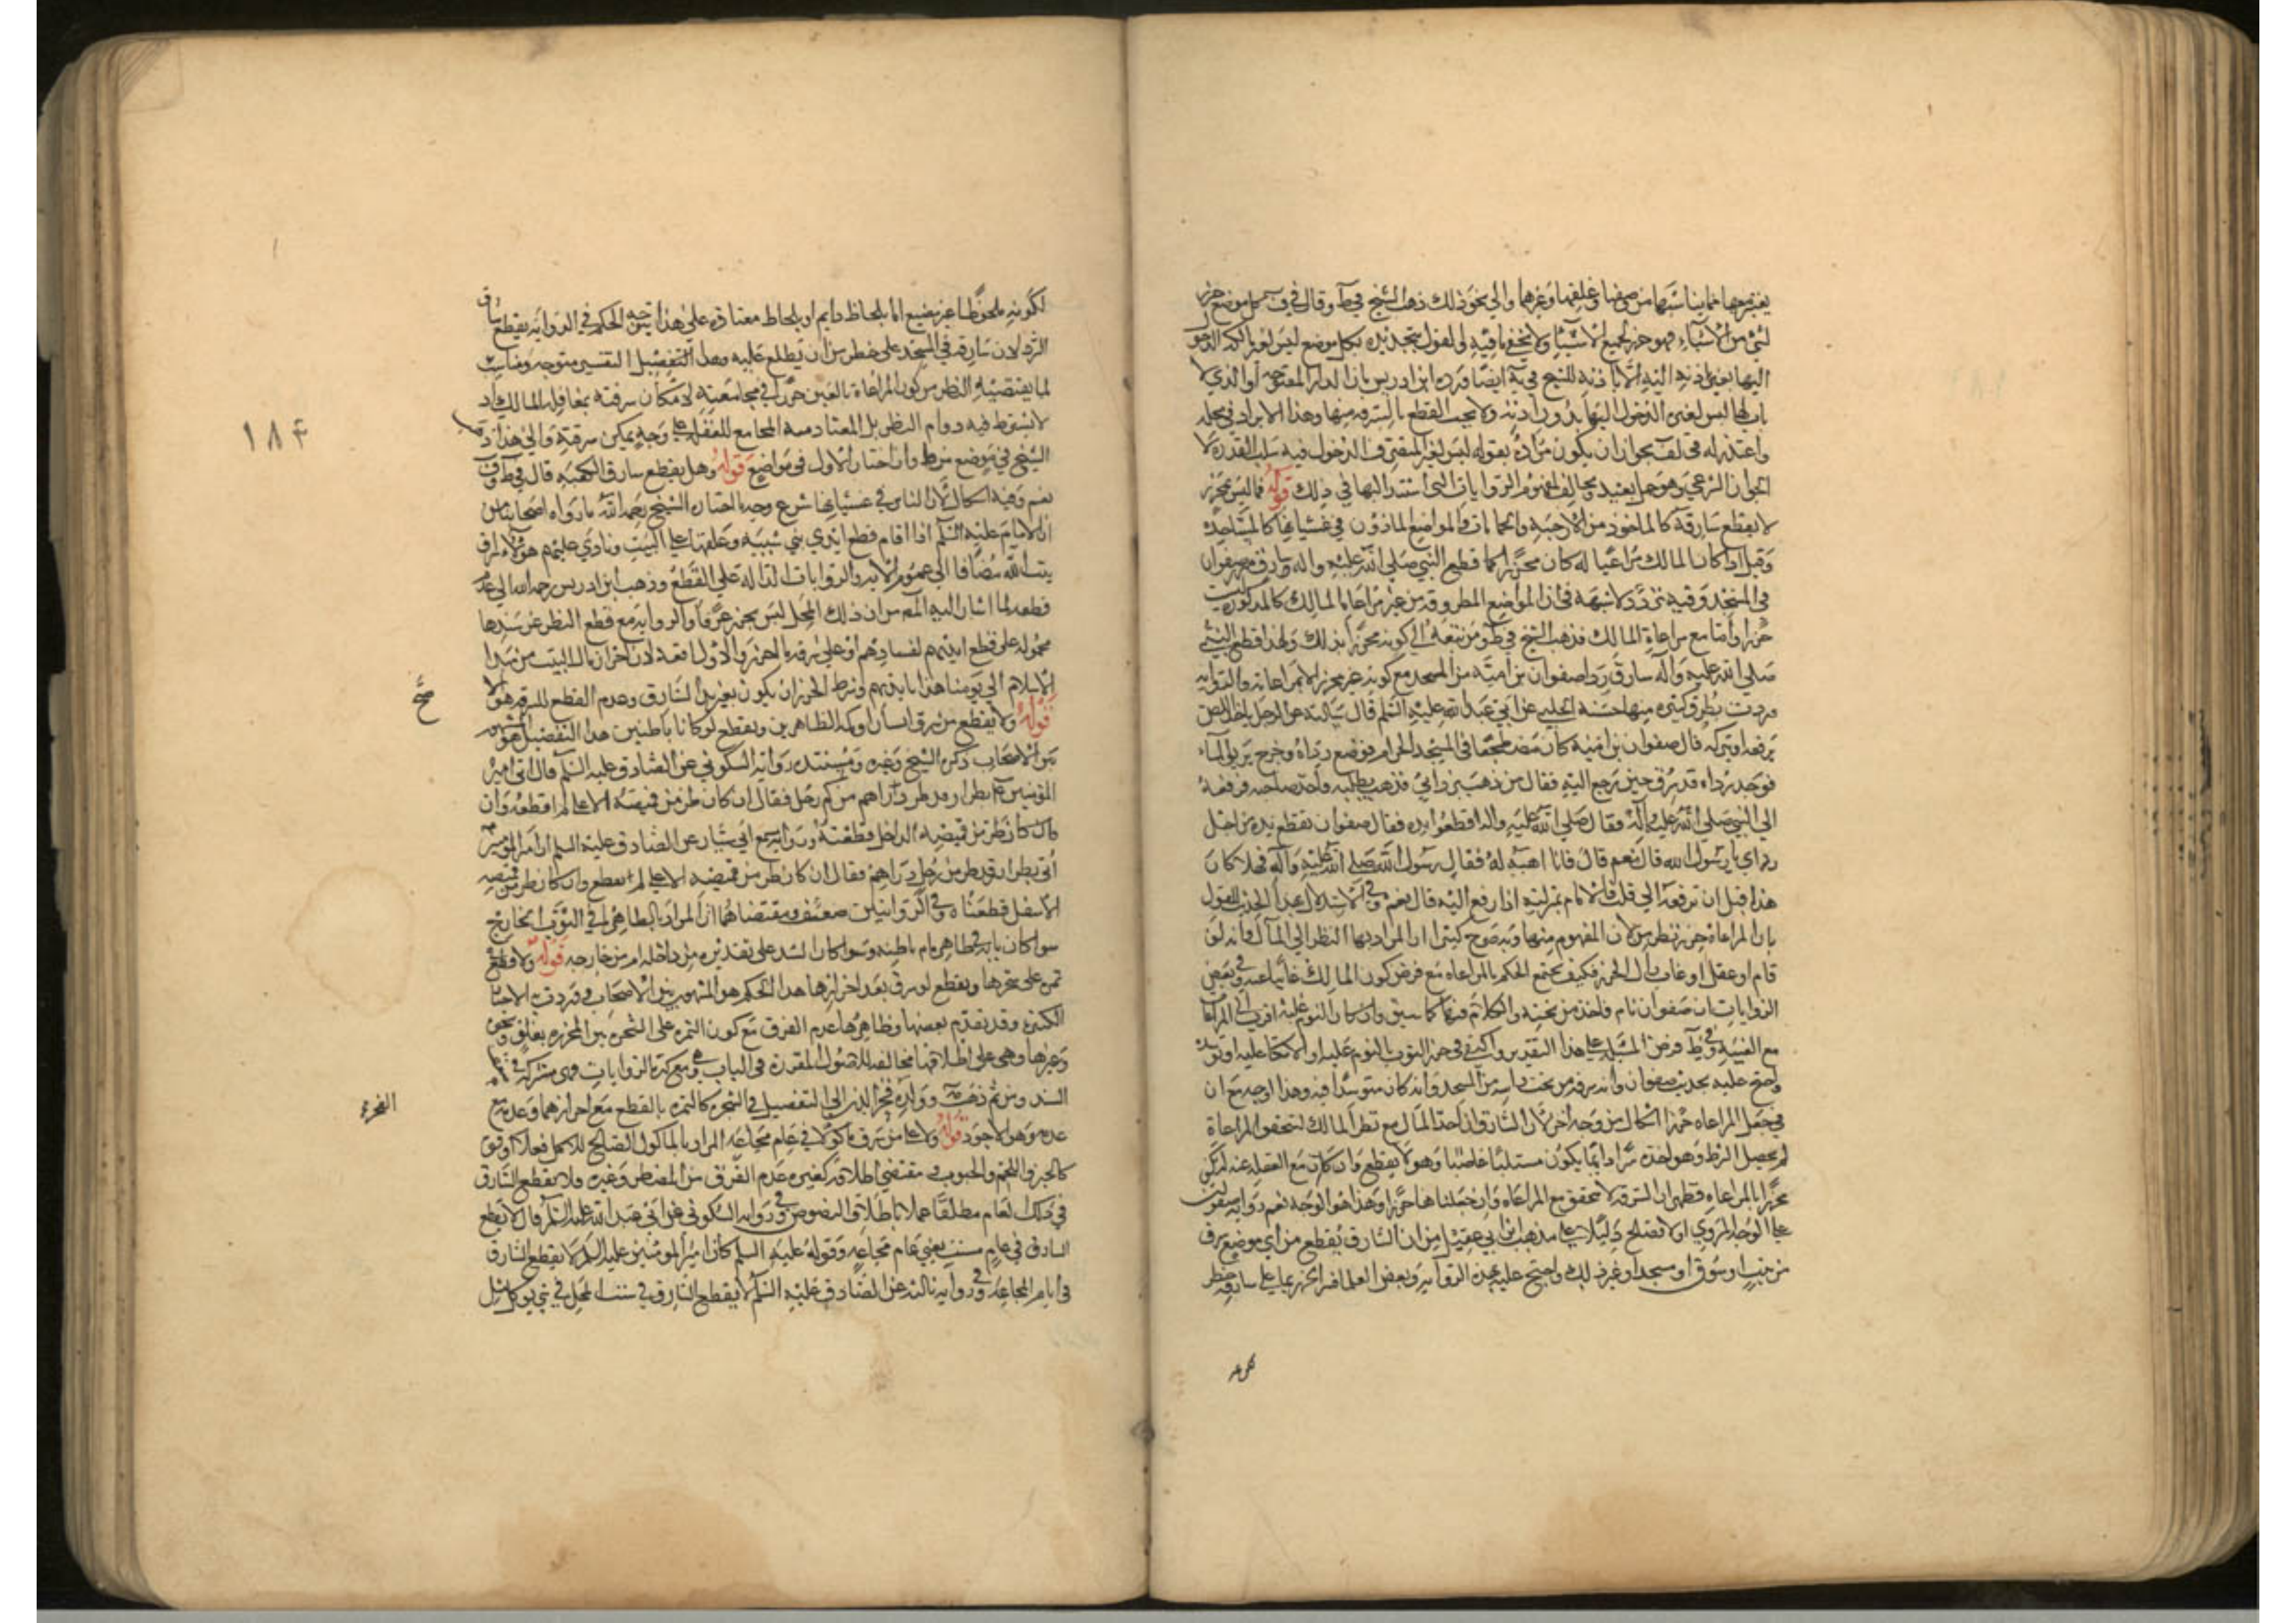 يعتبر حرزها بما يناسبها من وضعها وغلقها وغيرهما والى نحو ذلك ذهب الشيخ في ط وقال في ف كل موضع حرز
لشئ من الاشياء فهو حرز لجميع الاشياء ولا يخفى ما فيه والقول بتحديده بكل موضع ليس لغير المالك الدخول
اليها يعني باذنه الا باذنه للشيخ في يه ايضا ورده ابن ادريس بان الدار المفتوحة او التي لا
باب لها ليس لغيره الدخول اليها بدون اذنه ولا يجب القطع بالسرقة منها وهذا الايراد في محله
واعتذر له في لف بجواز ان يكون مراده بقوله ليس لغير المتصرف الدخول فيه سلب القدرة لا
الجواز الشرعي وهو حمل بعيد ويخالف لمفهوم الروايات التي استند اليها في ذلك قوله فما ليس بمحرز
لا يقطع سارقه كالماخوذ من الارحية والحمامات والمواضع الماذون في غشيانها كالمساجد
وقيل اذا كان المالك مراعيا له كان محرزا كما قطع النبي صلى الله عليه واله سارق مئزر صفوان
في المسجد وفيه تردد لا شبهة في ان المواضع المطروقة من غير مراعاة المالك كالمذكورة ليست
حرزا واما مع مراعاة المالك فذهب الشيخ في ط ومن تبعه الى كونه محرزا بذلك ولهذا قطع النبي
صلى الله عليه وآله سارق رداء صفوان بن امية من المسجد مع كونه غير محرز الا بمراعاته والرواية
وردت بطرق كثيرة منها حسنة الحلبي عن ابي عبد الله عليه السلم قال سالته عن الرجل ياخذ اللص
يرفعه او يتركه قال صفوان بن امية كان مضطجعا في المسجد الحرام فوضع رداه وخرج يريق الماء
فوجد رداه قد سرق حين رجع اليه فقال من ذهب بردائي فذهب يطلبه واخذ صاحبه فرفعه
الى النبي صلى الله عليه وآله فقال صلى الله عليه واله اقطعوا يده فقال صفوان تقطع يده من اجل
ردائي يا رسول الله قال نعم قال فانا اهبه له فقال رسول الله صلى الله عليه وآله فهلا كان
هذا قبل ان ترفعه الى قلت فالامام بمنزلته اذا رفع اليه قال نعم وفي الاستدلال بهذا الحديث للقول
بان المراعاة حرز نظر بين لان المفهوم منها وبه صرح كثير ان المراد بها النظر الى المال وانه لو
نام او غفل او غاب زال الحرز فكيف يجتمع الحكم بالمراعاة مع فرض كون المالك غائبا عنه وفي بعض
الروايات ان صفوان نام فاخذ من تحته والكلام فيها كما سبق وان كان النوم عليه اقرب الى المراعاة
مع الغيبة وفي ط فرض المسئلة على هذا التقدير واكتفى في حرز الثوب بالنوم عليه او الاتكاء عليه او توسده
واحتج عليه بحديث صفوان وانه سرقه من تحت راسه من المسجد وانه كان متوسدا فيه وهذا اوجه مع ان
في جعل المراعاة حرزا اشكالا من وجه اخر لان السارق ان اخذ المال مع نظر المالك لتحقق المراعاة
لم يحصل الشرط وهو اخذه سرا وانما يكون مستلبا غاصبا وهو لا يقطع وان كان مع الغفلة عنه لم يكن
محرزا بالمراعاة فظهر ان السرقة لا تتحقق مع المراعاة وان جعلناها حرزا وهذا هو الوجه نعم رواية صفوان
على الوجه المروي اولا تصلح دليلا على مذهب ابن ابي عقيل من ان السارق يقطع من اي موضع سرق
من بيت او سوق او مسجد او غير ذلك واحتج عليه بهذه الرواية وبعض العلماء فسر الحرز بما على سارقه خطر
لكونه ملحوظا غير مضيع اما بلحاظ دايم او بلحاظ معتاد وعلى هذا يتوجه الحكم في الرواية بقطع سارق
الرداء لان سارقه في المسجد على خطر من ان يطلع عليه وهذا التفصيل التفسير متوجه ومناسب
لما يقتضيه النظر من كون المراعاة بالعين حرزا في مجامعته لامكان سرقته بمغافلة المالك اذ
لا يشترط فيه دوام النظر بل المعتاد منه المجامع للغفلة على وجه يمكن سرقته والى هذا ذهب
الشيخ في موضع من ط وان اختار الاول في مواضع قوله وهل يقطع سارق ستارة الكعبة قال في ط وف
نعم وفيه اشكال لان الناس في غشيانها شرع وجه ما اختاره الشيخ رحمه الله ما رواه اصحابنا من
ان الامام عليه السلم اذا اقام قطع ايدي بني شيبة وعلقها على البيت ونادى عليهم هؤلاء سراق
بيت الله مضافا الى عموم الاية والروايات الدالة على القطع وذهب ابن ادريس رحمه الله الى عدم
قطعه لما اشار اليه المص من ان ذلك المحل ليس بحرز عرفا والرواية مع قطع النظر عن سندها
محمولة على قطع ايديهم لفسادهم او على سرقة ما احرز والاول اقعد لان احراز مال البيت من مبدا
الاسلام الى يومنا هذا بايديهم وشرط الحرز ان يكون بغير يد السارق وعدم القطع لسرقة هؤلا
قوله ولا يقطع من سرق من جيب انسان او كمه الظاهرين ويقطع لو كانا باطنين هذا التفصيل هو المشهور
بين الاصحاب ذكره الشيخ وغيره ومستنده رواية السكوني عن الصادق عليه السلم قال اتي امير
المؤمنين ع بطرار قد طر دراهم من كم رجل فقال ان كان طر من قميصه الاعلى لم اقطعه وان
كان طر من قميصه الداخل قطعته ورواية مسمع ابي سيار عن الصادق عليه السلم ان امير المؤمنين
أتي بطرار قد طر من رجل دراهم فقال ان كان طر من قميصه الاعلى لم نقطعه وان كان طر من قميصه
الاسفل قطعناه وفي الروايتين ضعف ومقتضاهما ان المراد بالظاهر ما في الثوب الخارج
سواء كان بابه في ظاهره ام باطنه وسواء كان الشد على تقديره من داخله ام من خارجه قوله ولا قطع في
ثمرة على شجرها ويقطع لو سرق بعد احرازها هذا الحكم هو المشهور بين الاصحاب وقد وردت به الاخبار
الكثيرة وقد تقدم بعضها وظاهرها عدم الفرق مع كون الثمرة على الشجرة بين المحرزة بغلق ونحوه
وغيرها وهي على اطلاقها مخالفة للاصول المقررة في الباب وهي مع كثرة الروايات مشتركة في ضعف
السند ومن ثم ذهب العلامة وولده فخر الدين الى التفصيل في الشجرة كالثمرة بالقطع مع احرازها وعدمه مع
عدمه وهو الاجود قوله ولا على من سرق ماكولا في عام مجاعة المراد بالماكول الصالح للاكل فعلا او قوة
كالخبز واللحم والحبوب ومقتضى اطلاقه كغيره عدم الفرق بين المضطر وغيره فلا يقطع السارق
في ذلك العام مطلقا عملا باطلاق النصوص وفي رواية السكوني عن ابي عبد الله عليه السلم قال لا يقطع
السارق في عام سنت يعني عام مجاعة وقوله عليه السلم كان امير المومنين عليه السلم لا يقطع السارق
في ايام المجاعة وفي رواية ثالثة عن الصادق عليه السلم لا يقطع السارق في سنة المحل في شئ يوكل مثل
صح
١٨٤